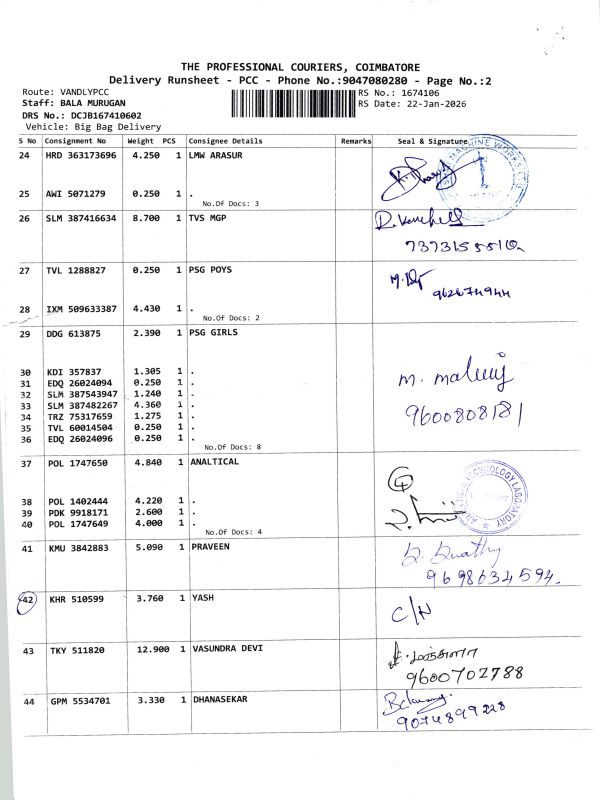 THE PROFESSIONAL COURIERS, COIMBATORE
Delivery Runsheet - PCC - Phone No.:9047080280 - Page No.:2
Route: VANDLYPCC
RS No.: 1674106
Staff: BALA MURUGAN
RS Date: 22-Jan-2026
DRS No.: DCJB167410602
Vehicle: Big Bag Delivery
S No Consignment No Weight PCS Consignee Details Remarks Seal & Signature
24 HRD 363173696 4.250 1 LMW ARASUR
25 AWI 5071279 0.250 1 .
No.Of Docs: 3
26 SLM 387416634 8.700 1 TVS MGP
27 TVL 1288827 0.250 1 PSG POYS
28 IXM 509633387 4.430 1 .
No.Of Docs: 2
29 DDG 613875 2.390 1 PSG GIRLS
30 KDI 357837 1.305 1 .
31 EDQ 26024094 0.250 1 .
32 SLM 387543947 1.240 1 .
33 SLM 387482267 4.360 1 .
34 TRZ 75317659 1.275 1 .
35 TVL 60014504 0.250 1 .
36 EDQ 26024096 0.250 1 .
No.Of Docs: 8
9600808181
37 POL 1747650 4.840 1 ANALTICAL
38 POL 1402444 4.220 1 .
39 PDK 9918171 2.600 1 .
40 POL 1747649 4.000 1 .
No.Of Docs: 4
41 KMU 3842883 5.090 1 PRAVEEN
9698634594.
42 KHR 510599 3.760 1 YASH
C/N
43 TKY 511820 12.900 1 VASUNDRA DEVI
9600702788
44 GPM 5534701 3.330 1 DHANASEKAR
9074899228